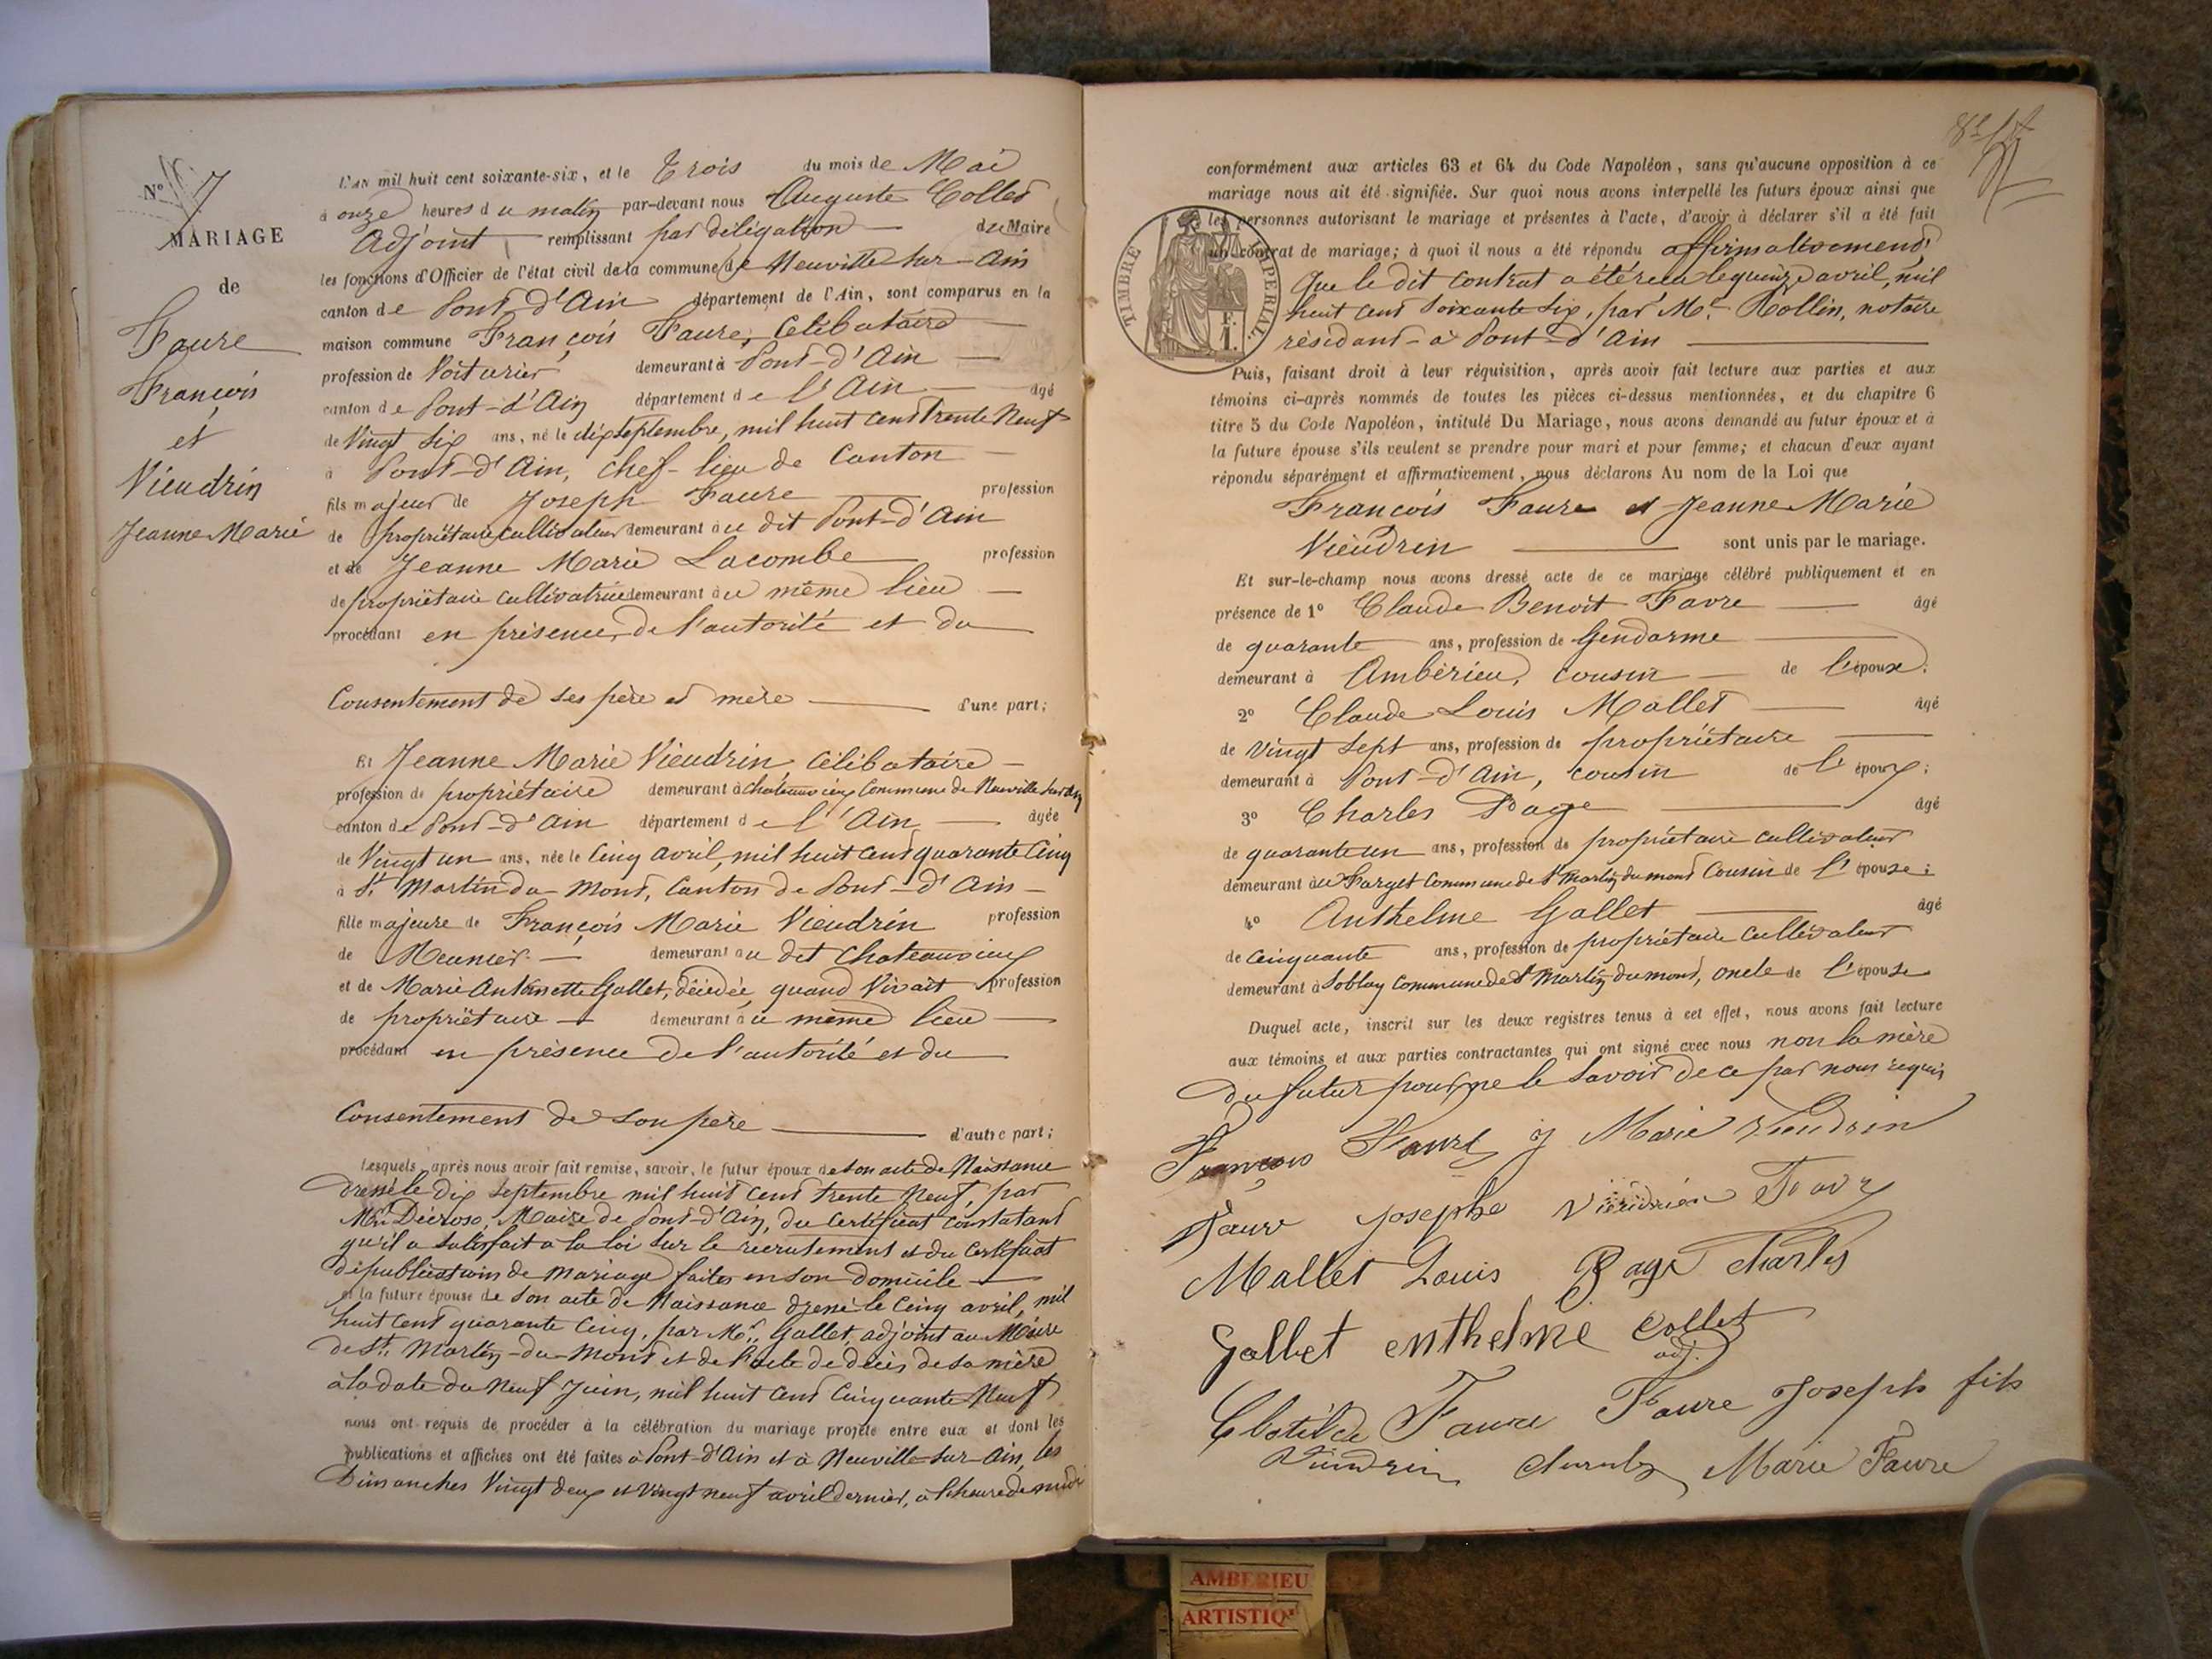 N° 7
MARIAGE
de
Faure
François
et
Vieudrin
Jeanne Marie
L'AN mil huit cent soixante-six, et le Trois du mois de Mai
à onze heures du matin par-devant nous Auguste Collet
Adjoint remplissant par délégation du Maire
les fonctions d'Officier de l'état civil de la commune de Neuville sur-Ain
canton de Pont-d'Ain département de l'Ain, sont comparus en la
maison commune François Faure, Célibataire
profession de Voiturier demeurant à Pont-d'Ain
canton de Pont-d'Ain département de l'Ain âgé
de Vingt six ans, né le dix septembre, mil huit cent trente Neuf
à Pont-d'Ain, chef-lieu de Canton
fils majeur de Joseph Faure profession
de propriétaire cultivateur demeurant au dit Pont-d'Ain
et de Jeanne Marie Lacombe profession
de propriétaire cultivatrice demeurant au même lieu
procédant en présence, de l'autorité et du
Consentement de ses père et mère d'une part;
Et Jeanne Marie Vieudrin, Célibataire
profession de propriétaire demeurant à Chateauvieux Commune de Neuville sur Ain
canton de Pont-d'Ain département de l'Ain âgée
de Vingt un ans, née le Cinq avril, mil huit cent quarante Cinq
à St Martin du Mont, Canton de Pont-d'Ain
fille majeure de François Marie Vieudrin profession
de Meunier demeurant au dit Chateauvieux
et de Marie Antoinette Gallet, décédée, quand Vivait profession
de propriétaire demeurant au même lieu
procédant en présence de l'autorité et du
Consentement de son père d'autre part;
Lesquels, après nous avoir fait remise, savoir, le futur époux de son acte de Naissance
dressé le dix septembre mil huit cent trente Neuf, par
Mr Décroso, Maire de Pont-d'Ain, du Certificat constatant
qu'il a satisfait à la loi sur le recrutement et du Certificat
de publications de mariage faites en son domicile
et la future épouse de son acte de Naissance dressé le Cinq avril, mil
huit cent quarante Cinq, par Mr Gallet, adjoint au Maire
de St Martin-du-Mont et de l'acte de décès de sa mère
à la date du Neuf Juin, mil huit cent Cinquante Neuf
nous ont requis de procéder à la célébration du mariage projeté entre eux et dont les
publications et affiches ont été faites à Pont-d'Ain et à Neuville-sur-Ain, les
Dimanches Vingt deux et Vingt neuf avril dernier, à l'heure de midi
conformément aux articles 63 et 64 du Code Napoléon, sans qu'aucune opposition à ce
mariage nous ait été signifiée. Sur quoi nous avons interpellé les futurs époux ainsi que
les personnes autorisant le mariage et présentes à l'acte, d'avoir à déclarer s'il a été fait
un contrat de mariage; à quoi il nous a été répondu affirmativement,
TIMBRE IMPERIAL
F.
1.
Que le dit contrat a été reçu le quinze avril, mil
huit cent soixante six, par Me Rollin, notaire
résidant à Pont-d'Ain
Puis, faisant droit à leur réquisition, après avoir fait lecture aux parties et aux
témoins ci-après nommés de toutes les pièces ci-dessus mentionnées, et du chapitre 6
titre 5 du Code Napoléon, intitulé Du Mariage, nous avons demandé au futur époux et à
la future épouse s'ils veulent se prendre pour mari et pour femme; et chacun d'eux ayant
répondu séparément et affirmativement, nous déclarons Au nom de la Loi que
François Faure et Jeanne Marie
Vieudrin sont unis par le mariage.
Et sur-le-champ nous avons dressé acte de ce mariage célébré publiquement et en
présence de 1° Claude Benoit Favre âgé
de quarante ans, profession de Gendarme
demeurant à Ambérieu, cousin de l'époux;
2° Claude Louis Mallet âgé
de vingt sept ans, profession de propriétaire
demeurant à Pont-d'Ain, cousin de l'époux;
3° Charles Page âgé
de quarante un ans, profession de propriétaire cultivateur
demeurant au Farget Commune de St Martin du mont Cousin de l'épouse;
4° Anthelme Gallet âgé
de Cinquante ans, profession de propriétaire Cultivateur
demeurant à Soblay Commune de St Martin du mont, oncle de l'épouse
Duquel acte, inscrit sur les deux registres tenus à cet effet, nous avons fait lecture
aux témoins et aux parties contractantes qui ont signé avec nous non la mère
du futur pour ne le savoir de ce par nous requis
François Faure j Marie Vieudrin
Faure Josephe Vieudrin Favre
Mallet Louis Page Charles
Gallet enthelme Collet
adj.
Clotilde Faure Faure Joseph fils
Vieudrin Marie Faure
AMBERIEU
ARTISTIQ